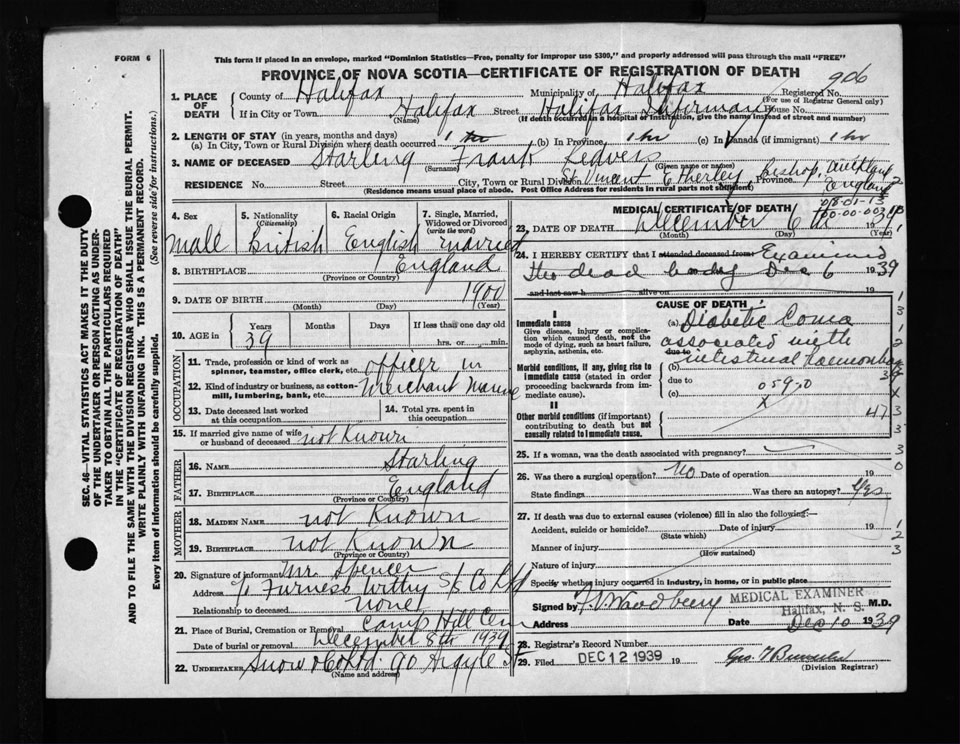 FORM 6
This form if placed in an envelope, marked "Dominion Statistics—Free, penalty for improper use $300," and properly addressed will pass through the mail "FREE"
PROVINCE OF NOVA SCOTIA—CERTIFICATE OF REGISTRATION OF DEATH
906
1. PLACE OF DEATH
County of Halifax Municipality of Halifax Registered No.
(For use of Registrar General only)
If in City or Town Halifax Street Halifax Infirmary House No.
(Name) (If death occurred in a hospital or institution, give the name instead of street and number)
2. LENGTH OF STAY (in years, months and days)
(a) In City, Town or Rural Division where death occurred 1 hr (b) In Province 1 hr (c) In Canada (if immigrant) 1 hr
3. NAME OF DECEASED Starling Frank Leavers
(Surname) (Given name or names)
RESIDENCE No. Street City, Town or Rural Division St. Vincent Etherley, Bishop Auckland Province England
(Residence means usual place of abode. Post Office Address for residents in rural parts not sufficient)
4. Sex Male
5. Nationality (Citizenship) British
6. Racial Origin English
7. Single, Married, Widowed or Divorced (write the word) married
8. BIRTHPLACE England
(Province or Country)
9. DATE OF BIRTH 1900
(Month) (Day) (Year)
10. AGE in Years Months Days If less than one day old
39 hrs. or min.
OCCUPATION
11. Trade, profession or kind of work as spinner, teamster, office clerk, etc. officer in
12. Kind of industry or business, as cotton-mill, lumbering, bank, etc. Merchant Marine
13. Date deceased last worked at this occupation
14. Total yrs. spent in this occupation
15. If married give name of wife or husband of deceased not Known
FATHER
16. NAME Starling
17. BIRTHPLACE England
(Province or Country)
MOTHER
18. MAIDEN NAME not Known
19. BIRTHPLACE not Known
(Province or Country)
20. Signature of informant Mr. Spencer
Address c/o Furness Withy S/S Co
Relationship to deceased none
21. Place of Burial, Cremation or Removal Camp Hill Cem
Date of burial or removal December 8th 1939
22. Undertaker Snow & Co Ltd. 90 Argyle St
(Name and address)
MEDICAL CERTIFICATE OF DEATH
23. DATE OF DEATH December 6 1939
(Month) (Day) (Year)
24. I HEREBY CERTIFY that I attended deceased from Examined
the dead body Dec 6 1939
and last saw h alive on
CAUSE OF DEATH
I
Immediate cause
Give disease, injury or complication which caused death, not the mode of dying, such as heart failure, asphyxia, asthenia, etc.
(a) Diabetic Coma
associated with
due to
intestinal haemorrhage
Morbid conditions, if any, giving rise to immediate cause (stated in order proceeding backwards from immediate cause).
(b)
due to
(c) 059.0
x
II
Other morbid conditions (if important) contributing to death but not causally related to immediate cause.
47
25. If a woman, was the death associated with pregnancy?
26. Was there a surgical operation? No Date of operation 19
State findings Was there an autopsy? Yes
27. If death was due to external causes (violence) fill in also the following:—
Accident, suicide or homicide? Date of injury 19
(State which)
Manner of injury
(How sustained)
Nature of injury
Specify whether injury occurred in industry, in home, or in public place
Signed by Woodbury MEDICAL EXAMINER M.D.
Halifax, N. S.
Address Date Dec 10 1939
28. Registrar's Record Number
29. Filed DEC 12 1939 19
(Division Registrar)
SEC. 46—VITAL STATISTICS ACT MAKES IT THE DUTY
OF THE UNDERTAKER OR PERSON ACTING AS UNDER-
TAKER TO OBTAIN ALL THE PARTICULARS REQUIRED
IN THE "CERTIFICATE OF REGISTRATION OF DEATH"
AND TO FILE THE SAME WITH THE DIVISION REGISTRAR WHO SHALL ISSUE THE BURIAL PERMIT.
WRITE PLAINLY WITH UNFADING INK. THIS IS A PERMANENT RECORD.
Every item of information should be carefully supplied. (See reverse side for instructions.)